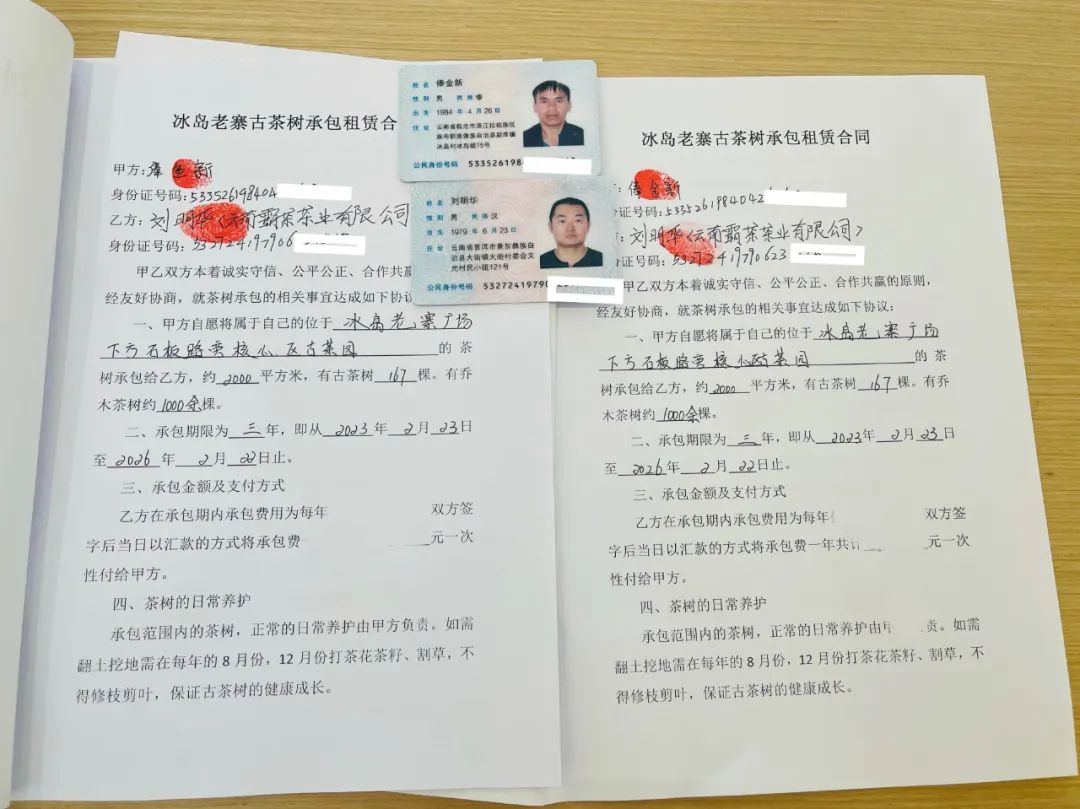 冰岛老寨古茶树承包租赁合
甲方:俸金新
身份证号码:533526198404
乙方:刘明华(云南霸茶茶业有限公司
身份证号码:532724197906
甲乙双方本着诚实守信、公平公正、合作共赢
经友好协商，就茶树承包的相关事宜达成如下协议
一、甲方自愿将属于自己的位于 冰岛老寨广场
下方石板路旁核心区古茶园 的茶
树承包给乙方，约 2000 平方米，有古茶树 167 棵。有乔
木茶树约 1000余 棵。
二、承包期限为 三 年，即从 2023 年 2 月 23 日
至 2026 年 2 月 22 日止。
三、承包金额及支付方式
乙方在承包期内承包费用为每年 双方签
字后当日以汇款的方式将承包费 元一次
性付给甲方。
四、茶树的日常养护
承包范围内的茶树，正常的日常养护由甲方负责。如需
翻土挖地需在每年的8月份，12月份打茶花茶籽、割草，不
得修枝剪叶，保证古茶树的健康成长。
姓名 俸金新
性别 男 民族 傣
出生 1984年4月26日
住址 云南省临沧市双江拉祜族佤
族布朗族傣族自治县勐库镇
冰岛村冰岛组75号
公民身份号码 533526198
姓名 刘明华
性别 男 民族 汉
出生 1979年6月23日
住址 云南省普洱市景东彝族自
治县大街镇大街村委会文
光村民小组121号
公民身份号码 5327241979
冰岛老寨古茶树承包租赁合同
:俸金新
证号码:5335261984042
:刘明华(云南霸茶茶业有限公司)
证号码:53272419790623
甲乙双方本着诚实守信、公平公正、合作共赢的原则，
经友好协商，就茶树承包的相关事宜达成如下协议：
一、甲方自愿将属于自己的位于 冰岛老寨广场
下方石板路旁核心区古茶园 的茶
树承包给乙方，约 2000 平方米，有古茶树 167 棵。有乔
木茶树约 1000余 棵。
二、承包期限为 三 年，即从 2023 年 2 月 23 日
至 2026 年 2 月 22 日止。
三、承包金额及支付方式
乙方在承包期内承包费用为每年 双方签
字后当日以汇款的方式将承包费一年共计 元一次
性付给甲方。
四、茶树的日常养护
承包范围内的茶树，正常的日常养护由甲 责。如需
翻土挖地需在每年的8月份，12月份打茶花茶籽、割草，不
得修枝剪叶，保证古茶树的健康成长。